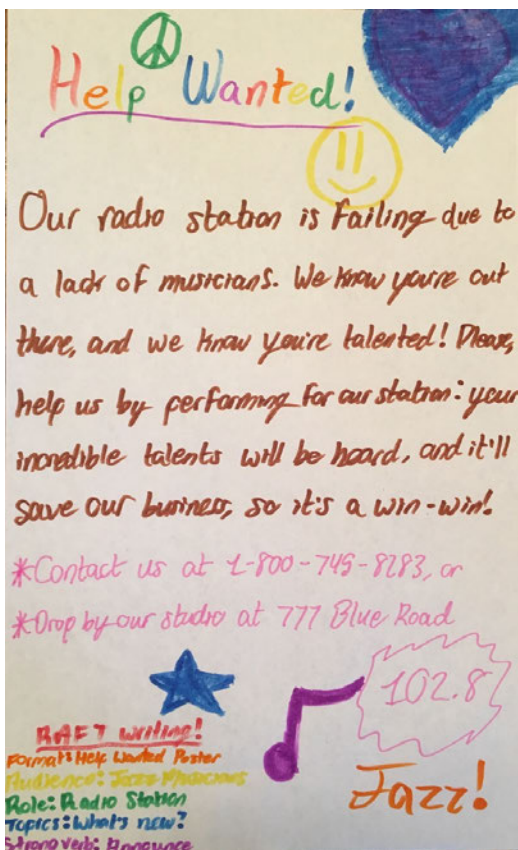 Help Wanted!
Our radio station is failing due to
a lack of musicians. We know you're out
there, and we know you're talented! Please,
help us by performing for our station: your
incredible talents will be heard, and it'll
save our business, so it's a win-win!
*Contact us at 1-800-745-8283, or
*Drop by our studio at 777 Blue Road
102.8
Jazz!
RAFT writing!
Format: Help Wanted Poster
Audience: Jazz Musicians
Role: Radio Station
Topics: What's new?
Strong verb: Announce